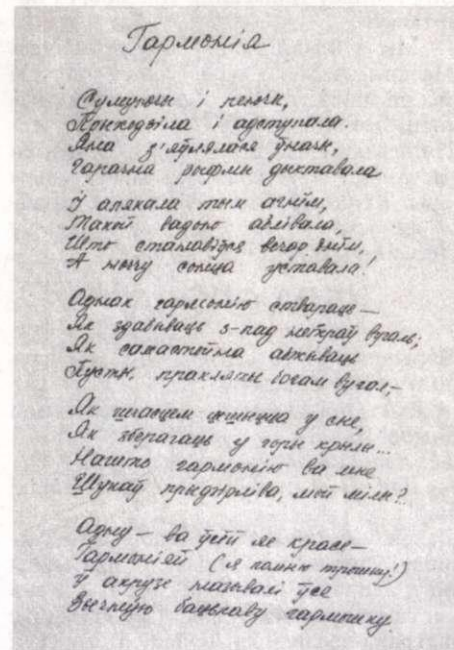 Гармонія
Сумуючы і пеючы,
Прыходзіла і адступала.
Яна з'яўлялася ўначы,
Гарачна рыфмы дыктавала
І апякала тым агнём,
Такой вадою аблівала,
Што станавіўся вечар днём,
А ноччу сонца уставала!
Аднак гармонію ствараць —
Як здабываць з-пад нетраў вугаль;
Як самастойна абжываць
Пусты, пракляты богам вугал,
Як шчасцем цешыцца у сне,
Як зберагаць у горы крылы...
Нашто гармонію ва мне
Шукаў прыдзірліва, мой мілы?
Адну — ва ўсёй яе красе —
Гармоніяй (я помню трошку!)
У акрузе называлі ўсе
Звычную бацькаву гармошку.